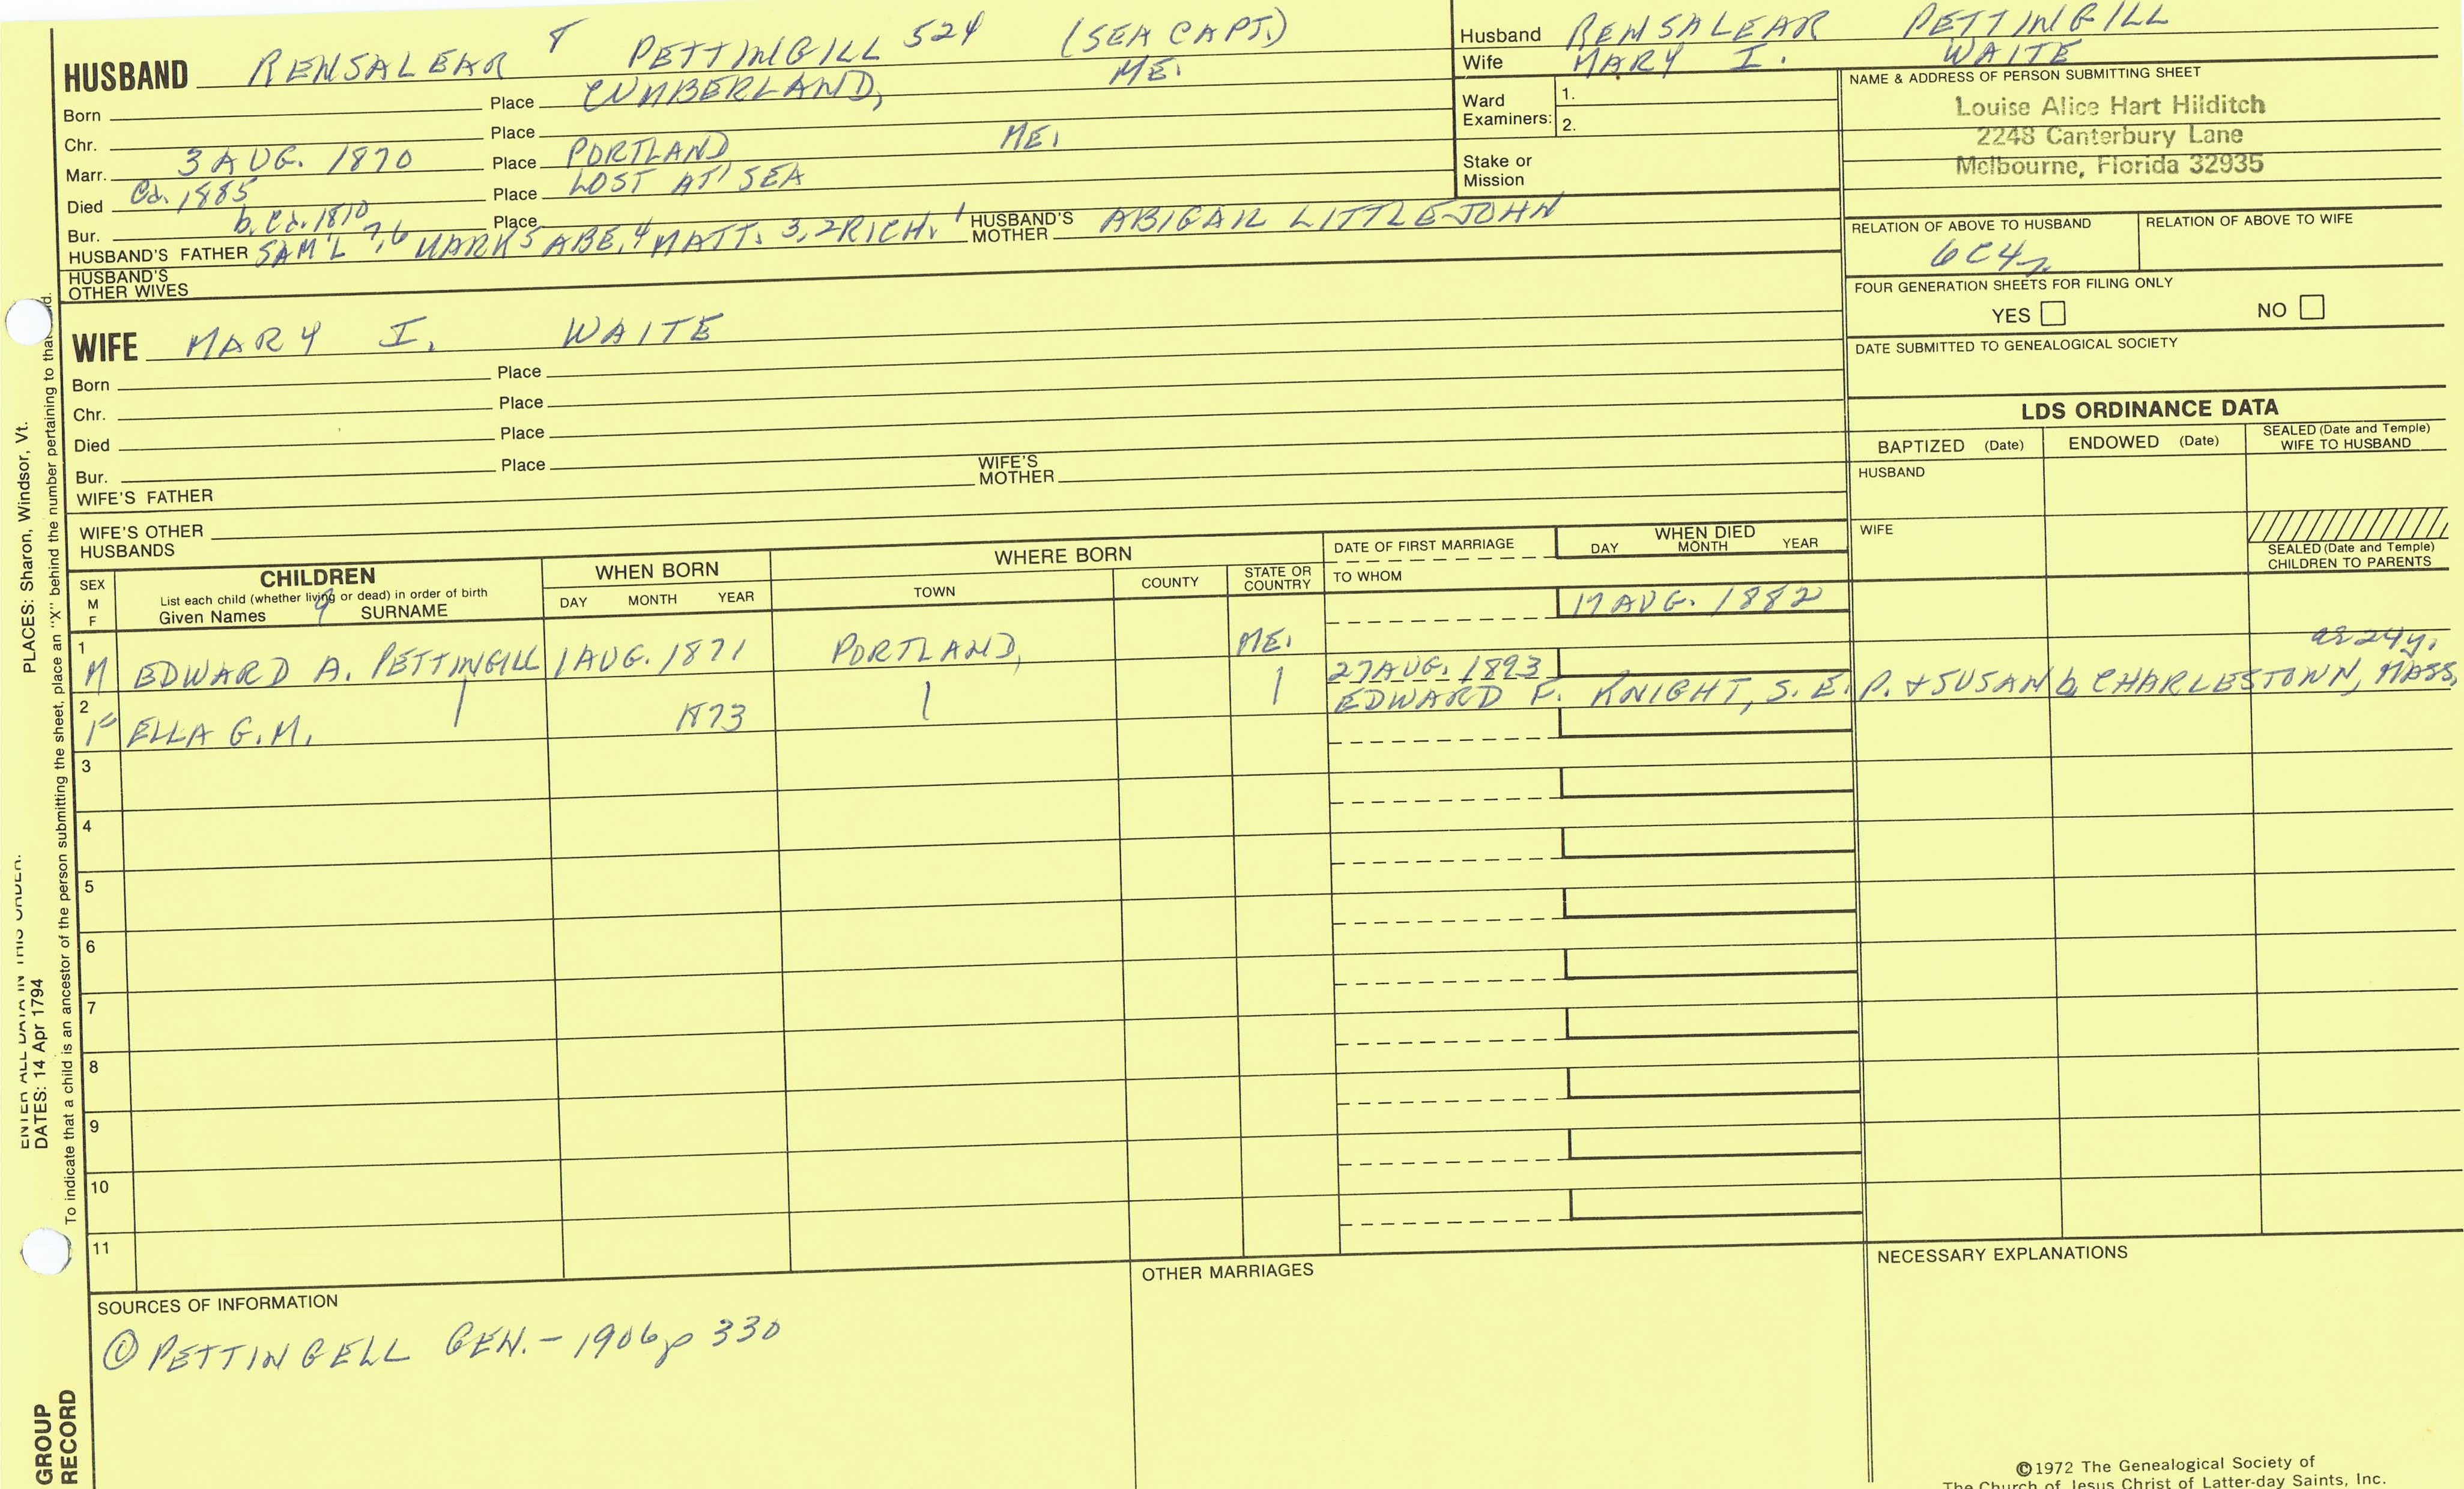 HUSBAND RENSALEAR 8 PETTINGILL 524 (SEA CAPT.)
Born Place CUMBERLAND, ME.
Chr. Place
Marr. 3 AUG. 1870 Place PORTLAND ME.
Died Ca. 1885 Place LOST AT SEA
Bur. b. Ca. 1810 Place
HUSBAND'S FATHER SAM'L 7,6 MARK 5 ABE, 4 MATT. 3,2 RICH. 1 HUSBAND'S MOTHER ABIGAIL LITTLEJOHN
HUSBAND'S OTHER WIVES
WIFE MARY I. WAITE
Born Place
Chr. Place
Died Place
Bur. Place
WIFE'S FATHER WIFE'S MOTHER
WIFE'S OTHER HUSBANDS
Husband RENSALEAR PETTINGILL
Wife MARY I. WAITE
Ward Examiners: 1.
2.
Stake or Mission
NAME & ADDRESS OF PERSON SUBMITTING SHEET
Louise Alice Hart Hilditch
2248 Canterbury Lane
Melbourne, Florida 32935
RELATION OF ABOVE TO HUSBAND RELATION OF ABOVE TO WIFE
6C4r
FOUR GENERATION SHEETS FOR FILING ONLY
YES NO
DATE SUBMITTED TO GENEALOGICAL SOCIETY
LDS ORDINANCE DATA
BAPTIZED (Date) ENDOWED (Date) SEALED (Date and Temple) WIFE TO HUSBAND
HUSBAND
WIFE
SEALED (Date and Temple) CHILDREN TO PARENTS
SEX M F
CHILDREN
List each child (whether living or dead) in order of birth
9
Given Names SURNAME
WHEN BORN
DAY MONTH YEAR
WHERE BORN
TOWN COUNTY STATE OR COUNTRY
DATE OF FIRST MARRIAGE
TO WHOM
WHEN DIED
DAY MONTH YEAR
1 M EDWARD A. PETTINGILL 1 AUG. 1871 PORTLAND, ME. 17 AUG. 1882
2 F ELLA G.M. 1873 27 AUG. 1893 ae 24y.
EDWARD F. KNIGHT, S. E. P. & SUSAN b. CHARLESTOWN, MASS.
3
4
5
6
7
8
9
10
11
SOURCES OF INFORMATION
① PETTINGELL GEN. - 1906 p 330
OTHER MARRIAGES
NECESSARY EXPLANATIONS
©1972 The Genealogical Society of
The Church of Jesus Christ of Latter-day Saints, Inc.
ENTER ALL DATA IN THIS ORDER:
DATES: 14 Apr 1794
PLACES: Sharon, Windsor, Vt.
To indicate that a child is an ancestor of the person submitting the sheet, place an "X" behind the number pertaining to that
GROUP
RECORD